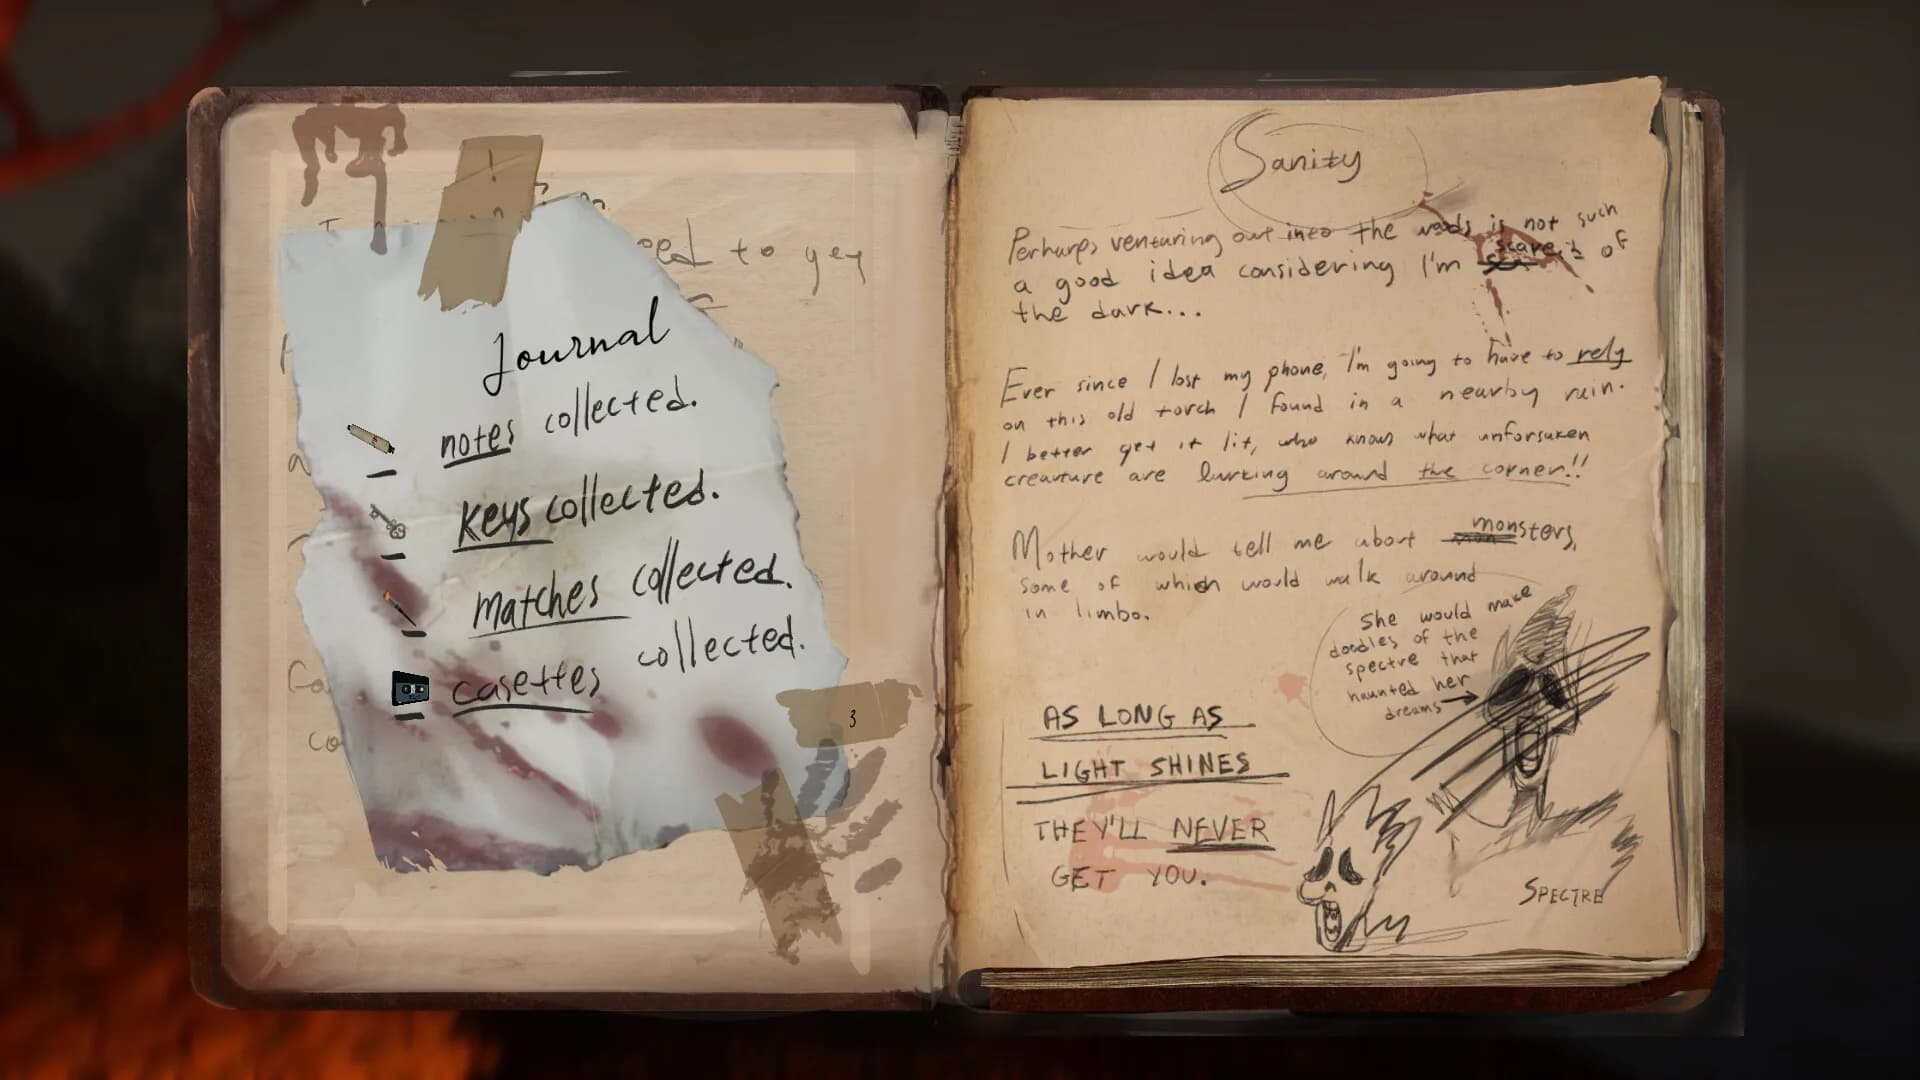 Journal
notes collected.
keys collected.
matches collected.
casettes collected.
3
eed to get
Sanity
Perhaps venturing out into the woods is not such
a good idea considering I'm scared of
the dark...
Ever since I lost my phone, I'm going to have to rely
on this old torch I found in a nearby ruin.
I better get it lit, who knows what unforsaken
creauture are lurking around the corner!!
Mother would tell me about monsters,
some of which would walk around
in limbo.
She would make
doodles of the
spectre that
haunted her
dreams
AS LONG AS
LIGHT SHINES
THEY'LL NEVER
GET YOU.
SPECTRE